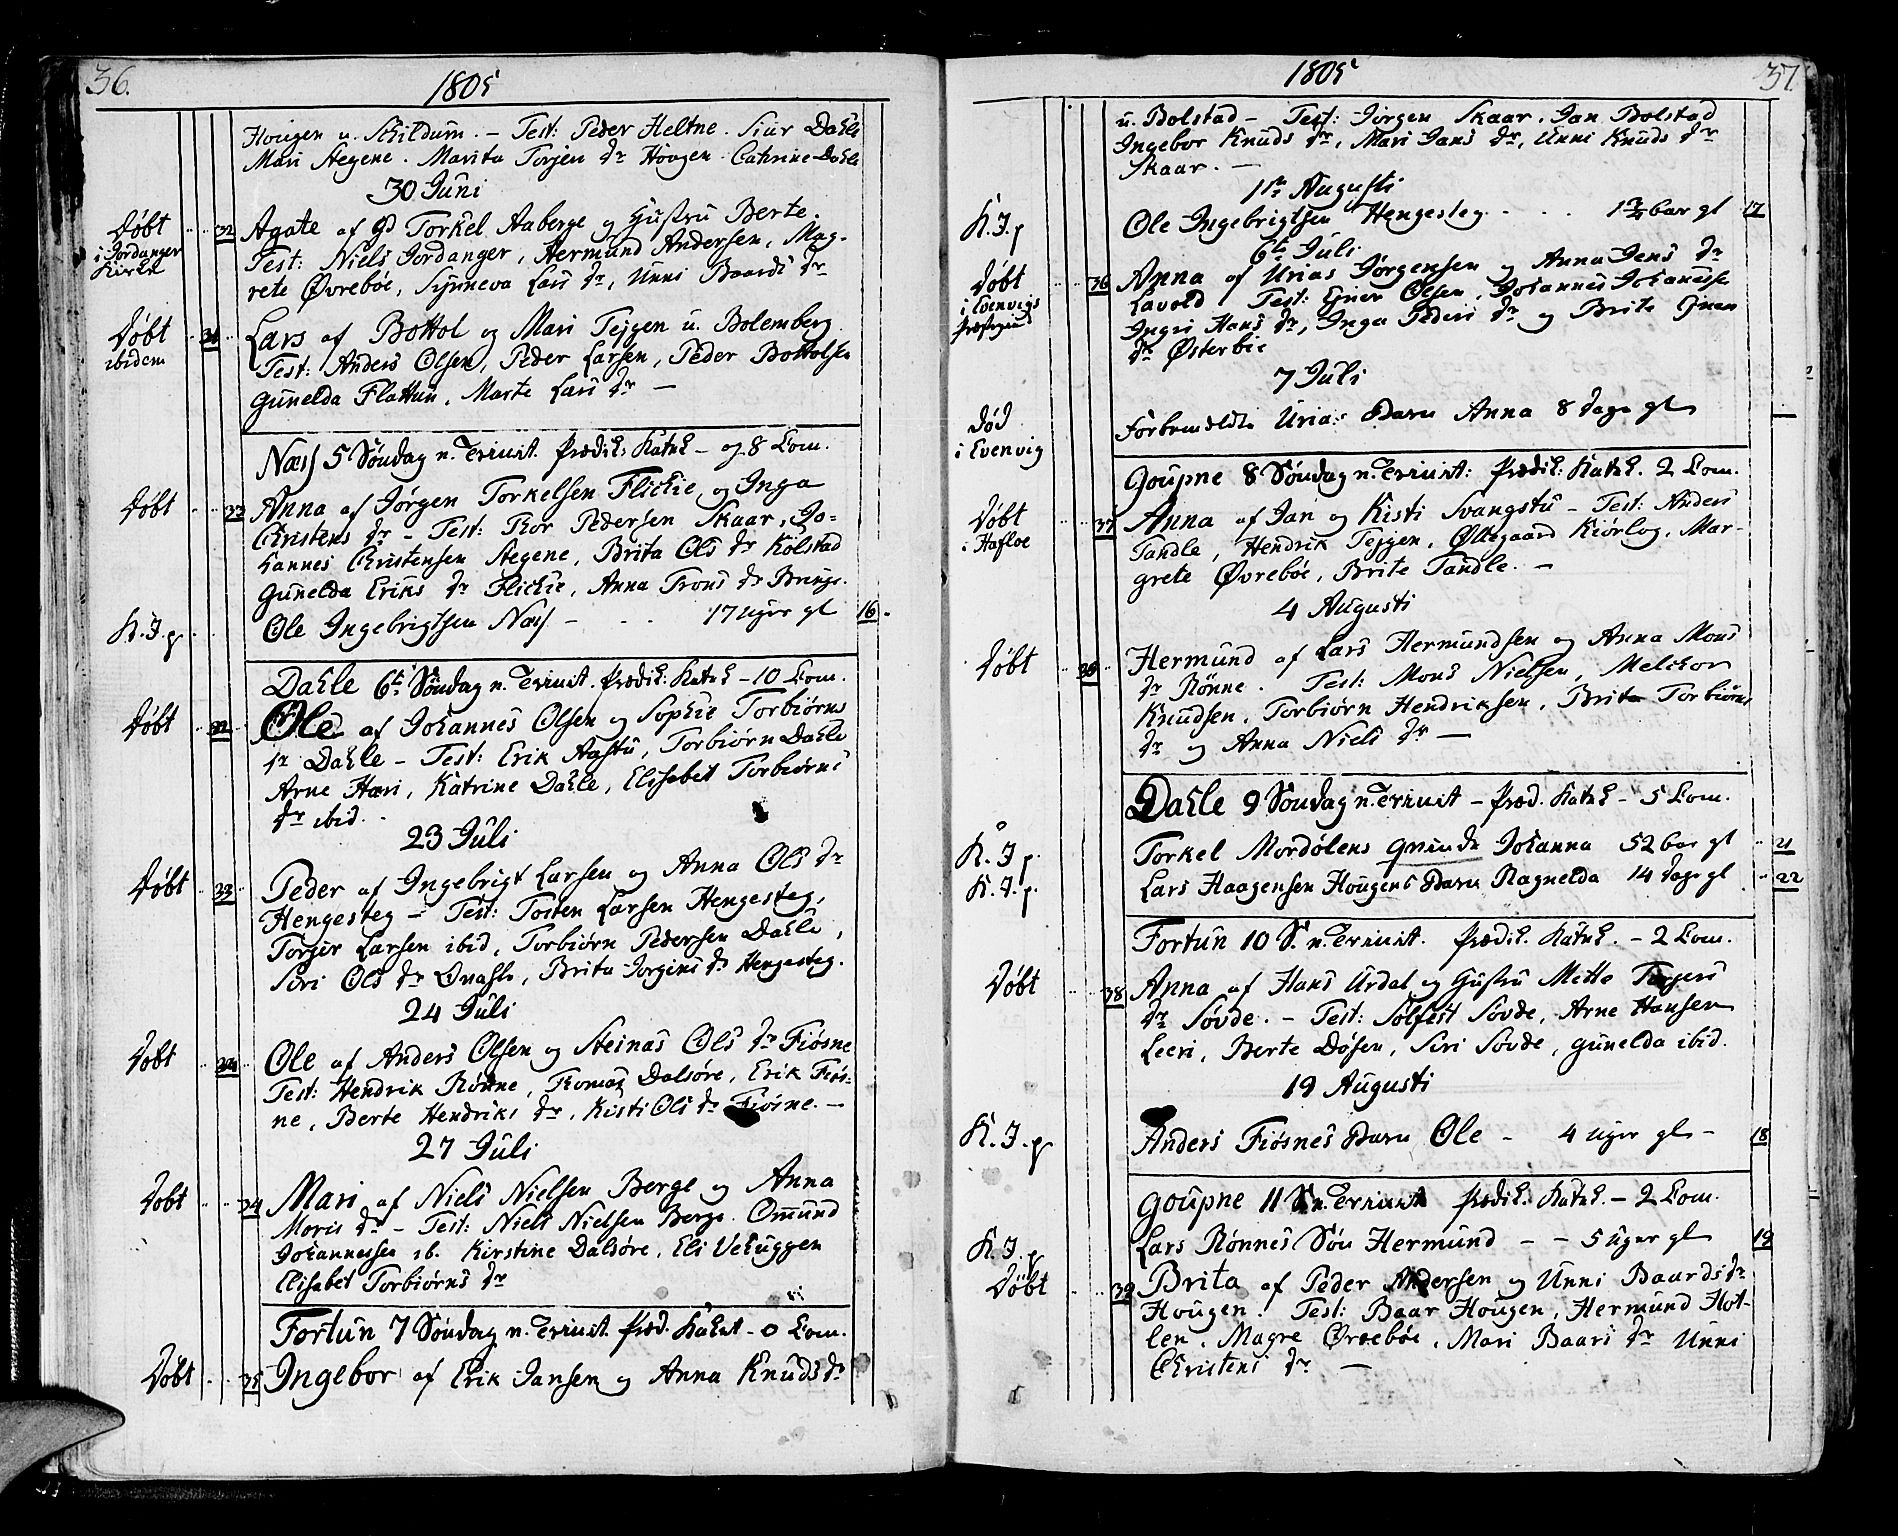 36.
1805
Hougen u. Schildum. – Test: Peder Heltne. Siur Dahle
Mari Stegene. Marita Torjen dr Hougen Cathrine Dahle
30 Juni
Døbt i Jordanger Kirke 32 Agate af Gd Torkel Aaberge og Hustru Berte.
Test: Niels Jordanger, Hermund Andersen, Mag-
rete Øvrebøe, Synneva Lars dr, Unni Baards dr
Døbt ibidem 31 Lars af Bottol og Mari Tejgen u. Bolemberg
Test: Anders Olsen, Peder Larsen, Peder Bottolsen
Gunelda Flattun, Marte Lars dr –
Næss 5 Søndag n. Trinit. Prædik: Katek – og 8 Com.
Døbt 33 Anna af Jørgen Torkelsen Flickie og Inga
Christens dr – Test: Thor Pedersen Skaar, Jo-
hannes Christensen Stegene, Brita Ols dr Kolstad
Gunelda Eriks dr Flickie, Anna Trons dr Bringe.
K. J. p Ole Ingebrigtsen Næss – 17 uger gl 16
Dahle 6te Søndag n. Trinit. Prædik: Katek – 10 Com.
Døbt 32 Ole af Johannes Olsen og Sophie Torbiørns
dr Dahle – Test: Erik Aastu, Torbiørn Dahle
Arne Hæri, Katrine Dahle, Elisabet Torbiørns
dr ibid.
23 Juli
Døbt 33 Peder af Ingebrigt Larsen og Anna Ols dr
Hengesteg – Test: Tosten Larsen Hengesteg,
Torger Larsen ibid, Torbiørn Pedersen Dahle,
Siri Ols dr Qvahle, Brita Jorgens dr Hengesteg.
24 Juli
Døbt Ole af Anders Olsen og Steinas Ols dr Fiøsne
Test: Hendrik Rønne, Thomas Dalsøre, Erik Fiøs-
ne, Berte Hendriks dr, Kisti Ols dr Fiøsne. –
27 Juli
Døbt 34 Mari af Niels Nielsen Berge og Anna
Moris dr – Test: Niels Nielsen Berge. Omund
Johannessen ib. Kirstine Dalsøre, Eli Vehuggen
Elisabet Torbiørns dr
Fortun 7 Søndag n. Trinit. Præd. Katek – 0 Com.
Døbt 35 Ingebor af Erik Jansen og Anna Knuds dr
37.
1805
u. Bolstad – Test: Jørgen Skaar. Jan Bolstad
Ingebor Knuds dr, Mari Jans dr, Unni Knuds dr
Skaar. –
1te Augusti
K. J. p Ole Ingebrigtsen Hengesteg gl 17
6te Juli
Døbt i Evenvigs Præstegield 36 Anna af Urias Jørgensen og Anna Jens dr
Lavold Test: Einer Olsen, Johannes Johannesen
Ingri Hans dr, Inga Peders dr og Brite
dr Østerbie
7 Juli
Død i Evenvig Forbemeldte Urias Barn Anna 8 dage gl
Goupne 8 Søndag n. Trinit: Prædik: Katek. 2 Com.
Døbt i Hafloe 37 Anna af Jan og Kisti Svangstu – Test: Anders
Tandle, Hendrik Tejgen, Øllegaard Kiørlog, Mar-
grete Øvrebøe, Brite Tandle. –
4 Augusti
Døbt 38 Hermund af Lars Hermundsen og Anna Mons
dr Rønne. Test: Mons Nielsen, Melchor
Knudsen, Torbiørn Hendriksen, Brita Torbiørns
dr og Anna Niels dr –
Dahle 9 Søndag n. Trinit – Præd. Katek – 5 Com.
K. J. p. Torkel Mordølens Johanna 52 aar gl 21
K. J. p. Lars Haagensen Hougens Barn Ragnelda 14 dage gl 22
Fortun 10 S. n. Trinit. Prædik. Katek. – 2 Com.
Døbt 38 Anna af Hans Urdal og Hustru Mette Torgers
dr Søvde. – Test: Solfest Søvde, Arne Hansen
Leeri, Berte Døsen, Siri Søvde, Gunelda ibid.
19 Augusti
K. J. p Anders Fiøsnes Barn Ole – 4 uger gl – 18
Goupne 11 S. n. Trinit Prædik. Katek. – 2 Com.
K. J. p Lars Rønnes Søn Hermund – – 5 uger gl 19
Døbt 39 Brita af Peder Andersen og Unni Baards dr
Hougen. Test: Baar Hougen, Hermund Hot-
len, Magre Øvrebøe, Mari Baars dr Unni
Christens dr –